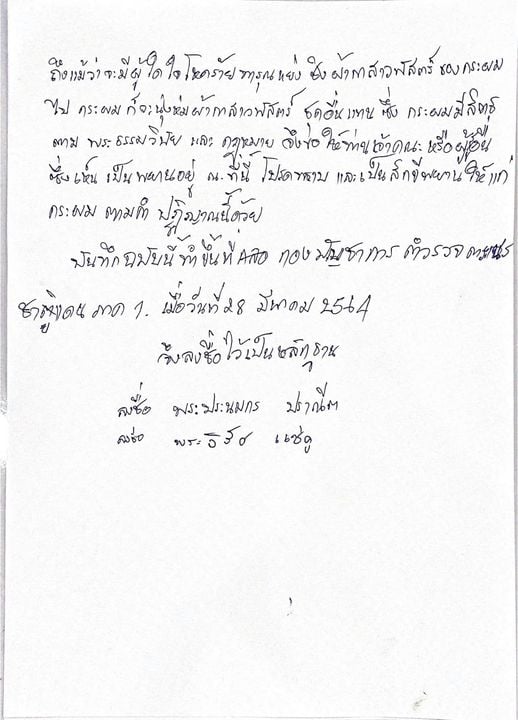 ถึงแม้ว่าจะมีผู้ใดใจโหดร้ายทารุณแย่งชิงผ้ากาสาวพัสตร์ของกระผม
ไป กระผมก็จะนุ่งห่มผ้ากาสาวพัสตร์ ชุดอื่นแทนซึ่ง กระผมมีสิทธิ
ตาม พระธรรมวินัย และ กฎหมาย จึงขอให้ท่านเจ้าคณะ หรือผู้อื่น
ซึ่งเห็น เป็นพยานอยู่ ณ.ที่นี้ โปรดทราบ และเป็นสักขีพยานให้แก่
กระผม ตามคำ ปฏิญาณนี้ด้วย
บันทึกฉบับนี้ทำขึ้นที่ กองบัญชาการ ตำรวจตระเวน
ชายแดน ภาค 1. เมื่อวันที่ 28 มีนาคม 2564
จึงลงชื่อไว้เป็นหลักฐาน
ลงชื่อ พระปรนมกร ปราณีต
ลงชื่อ พระอิสระ